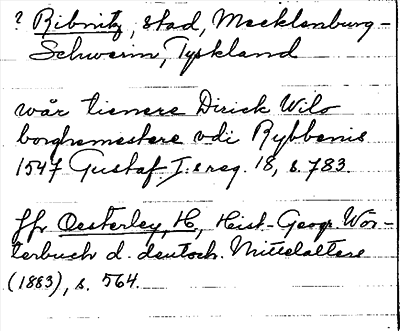 ? Ribnitz, stad, Mecklenburg-
Schwerin, Tyskland
wår tienere Dirick Wilo
borghemestere vdi Rybbenis
1547 Gustaf I:s reg. 18, s. 783.
Jfr Oesterley, H, Hist.-Geogr. Wör-
terbuch d. deutsch. Mittelalters
(1883), s. 564.